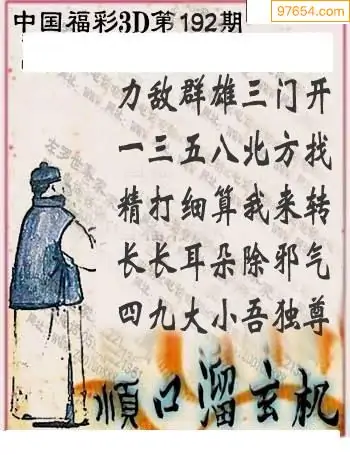 97654.com
中国福彩3D第192期
力敌群雄三门开
一三五八北方找
精打细算我来转
长长耳朵除邪气
四九大小吾独尊
順口溜玄机